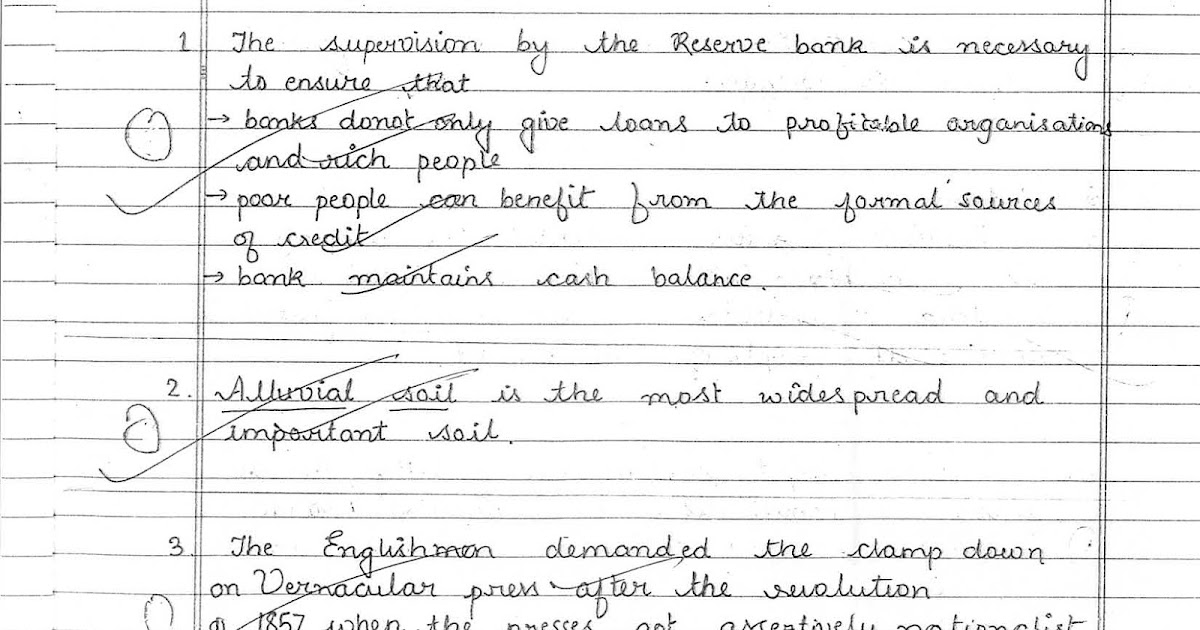 1 The supervision by the Reserve bank is necessary
to ensure that
→ banks donot only give loans to profitable organisations
and rich people
→ poor people can benefit from the formal sources
of credit
→ bank maintains cash balance.
2. Alluvial soil is the most widespread and
important soil.
3. The Englishmen demanded the clamp down
on Vernacular press after the revolution
of 1857 when the presses got assertively nationalist